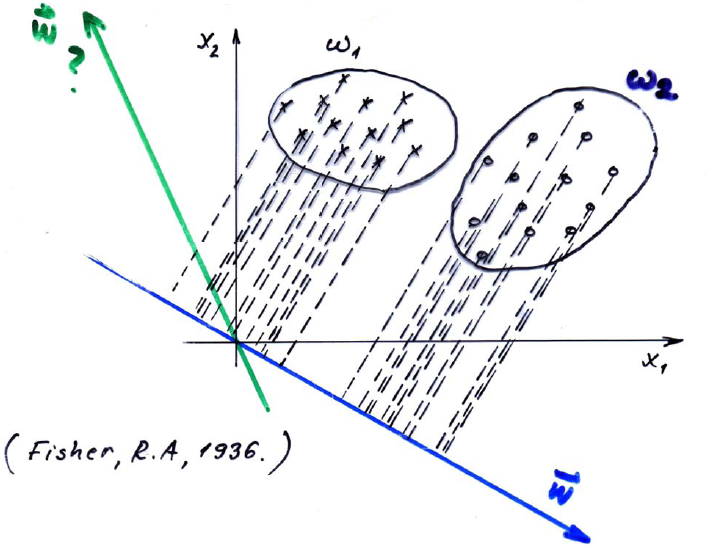 w̄ ?
x₂
ω₁
ω₂
x₁
(Fisher, R.A, 1936.)
w̄